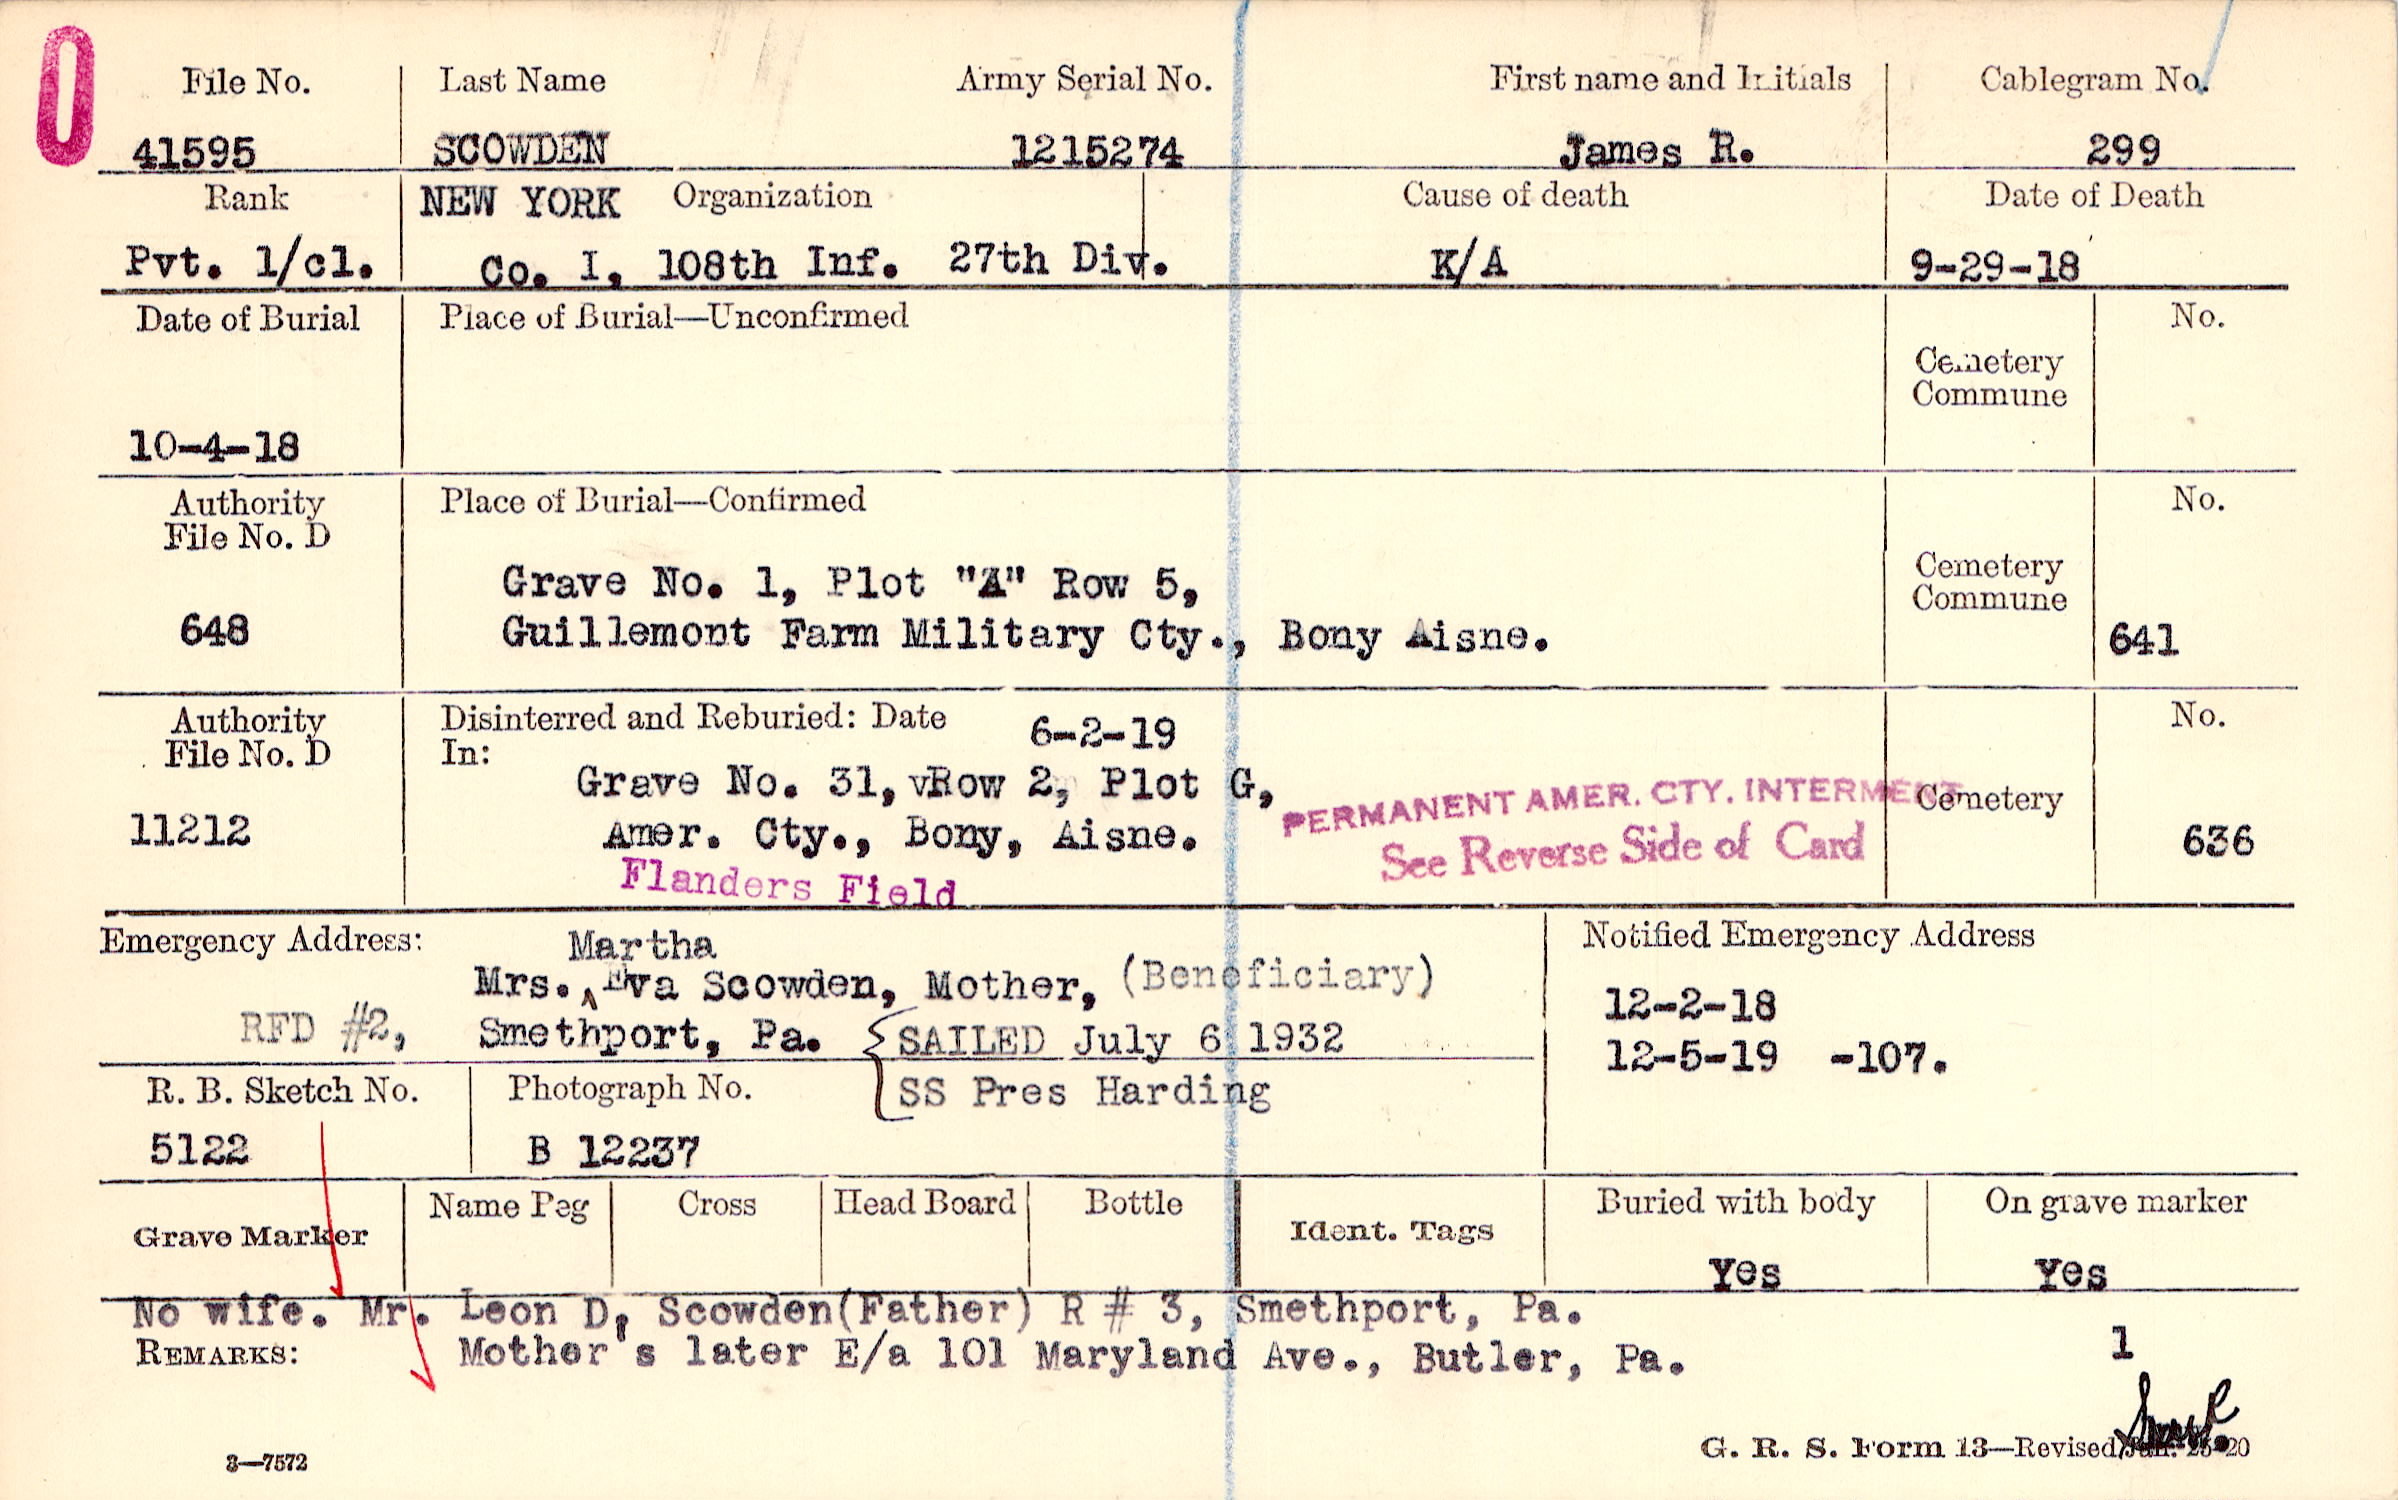 0
File No. Last Name Army Serial No. First name and Initials Cablegram No.
41595 SCOWDEN 1215274 James R. 299
Rank NEW YORK Organization Cause of death Date of Death
Pvt. 1/cl. Co. I, 108th Inf. 27th Div. K/A 9-29-18
Date of Burial Place of Burial—Unconfirmed No.
Cemetery
Commune
10-4-18
Authority Place of Burial—Confirmed No.
File No. D
Cemetery
Grave No. 1, Plot "A" Row 5, Commune
648 Guillemont Farm Military Cty., Bony Aisne. 641
Authority Disinterred and Reburied: Date 6-2-19 No.
File No. D In:
Grave No. 31, vRow 2, Plot G, PERMANENT AMER. CTY. INTERMENT Cemetery
11212 Amer. Cty., Bony, Aisne. See Reverse Side of Card 636
Flanders Field
Emergency Address: Martha Notified Emergency Address
Mrs. ^Eva Scowden, Mother, (Beneficiary) 12-2-18
RFD #2, Smethport, Pa. {SAILED July 6 1932 12-5-19 -107.
R. B. Sketch No. Photograph No. SS Pres Harding
5122 B 12237
Grave Marker Name Peg Cross Head Board Bottle Ident. Tags Buried with body On grave marker
Yes Yes
No wife. Mr. Leon D, Scowden(Father) R # 3, Smethport, Pa.
REMARKS: Mother's later E/a 101 Maryland Ave., Butler, Pa. 1
3—7572 G. R. S. Form 13—Revised